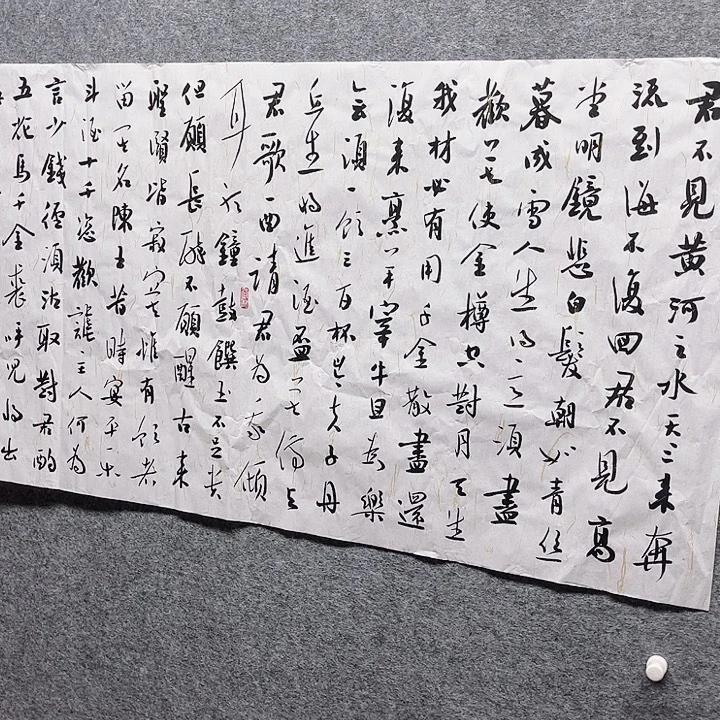 君不見黃河之水天上來奔
流到海不復回君不見高
堂明鏡悲白髮朝如青絲
暮成雪人生得意須盡
歡莫使金樽空對月天生
我材必有用千金散盡還
復來烹羊宰牛且為樂
會須一飲三百杯岑夫子丹
丘生將進酒盃莫停與
君歌一曲請君為我傾
耳鐘鼓饌玉不足貴
但願長醉不願醒古來
聖賢皆寂寞惟有飲者
留其名陳王昔時宴平樂
斗酒十千恣歡謔主人何為
言少錢徑須沽取對君酌
五花馬千金裘呼兒將出